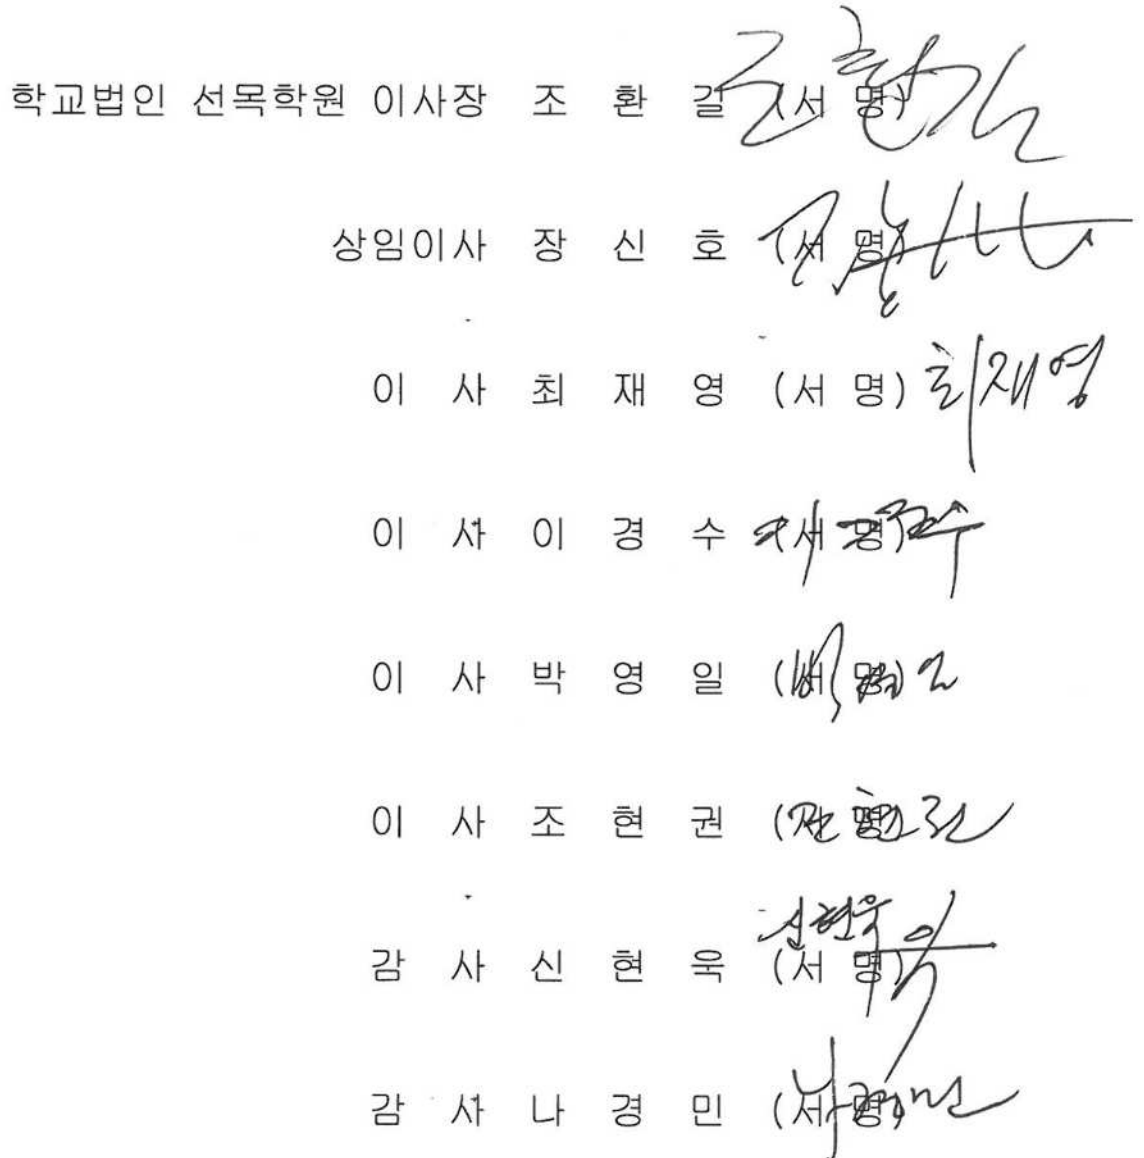 학교법인 선목학원 이사장 조 환 길 (서 명) 조환길
상임이사 장 신 호 (서 명)
이 사 최 재 영 (서 명) 최재영
이 사 이 경 수 (서 명) 이경수
이 사 박 영 일 (서 명) 박영일
이 사 조 현 권 (서 명) 조현권
감 사 신 현 욱 (서 명) 신현욱
감 사 나 경 민 (서 명) 나경민